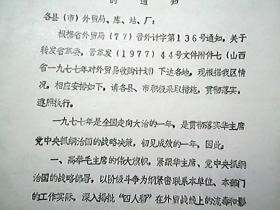 的通知
各县（市）外贸局、库、站、厂：
根据省外贸局（77）晋外计字第136号通知，关于
转发省革委、晋革发（1977）44号文件附件七（山西
省一九七七年对外贸易收购计划）下达各地，现根据我区情
况，相应安排如下，请各县、市积极采取措施，贯彻落实，
遵照执行。
一九七七年是全国走向大治的一年，是贯彻落实华主席
党中央抓纲治国的战略决策，初见成效的一年，因此：
一、高举毛主席的伟大旗帜，紧跟华主席、党中央抓纲
治国的战略部署，以阶级斗争为纲紧密联系本单位、本部门
的工作实际，深入揭批“四人帮”在外贸战线上的流毒和影